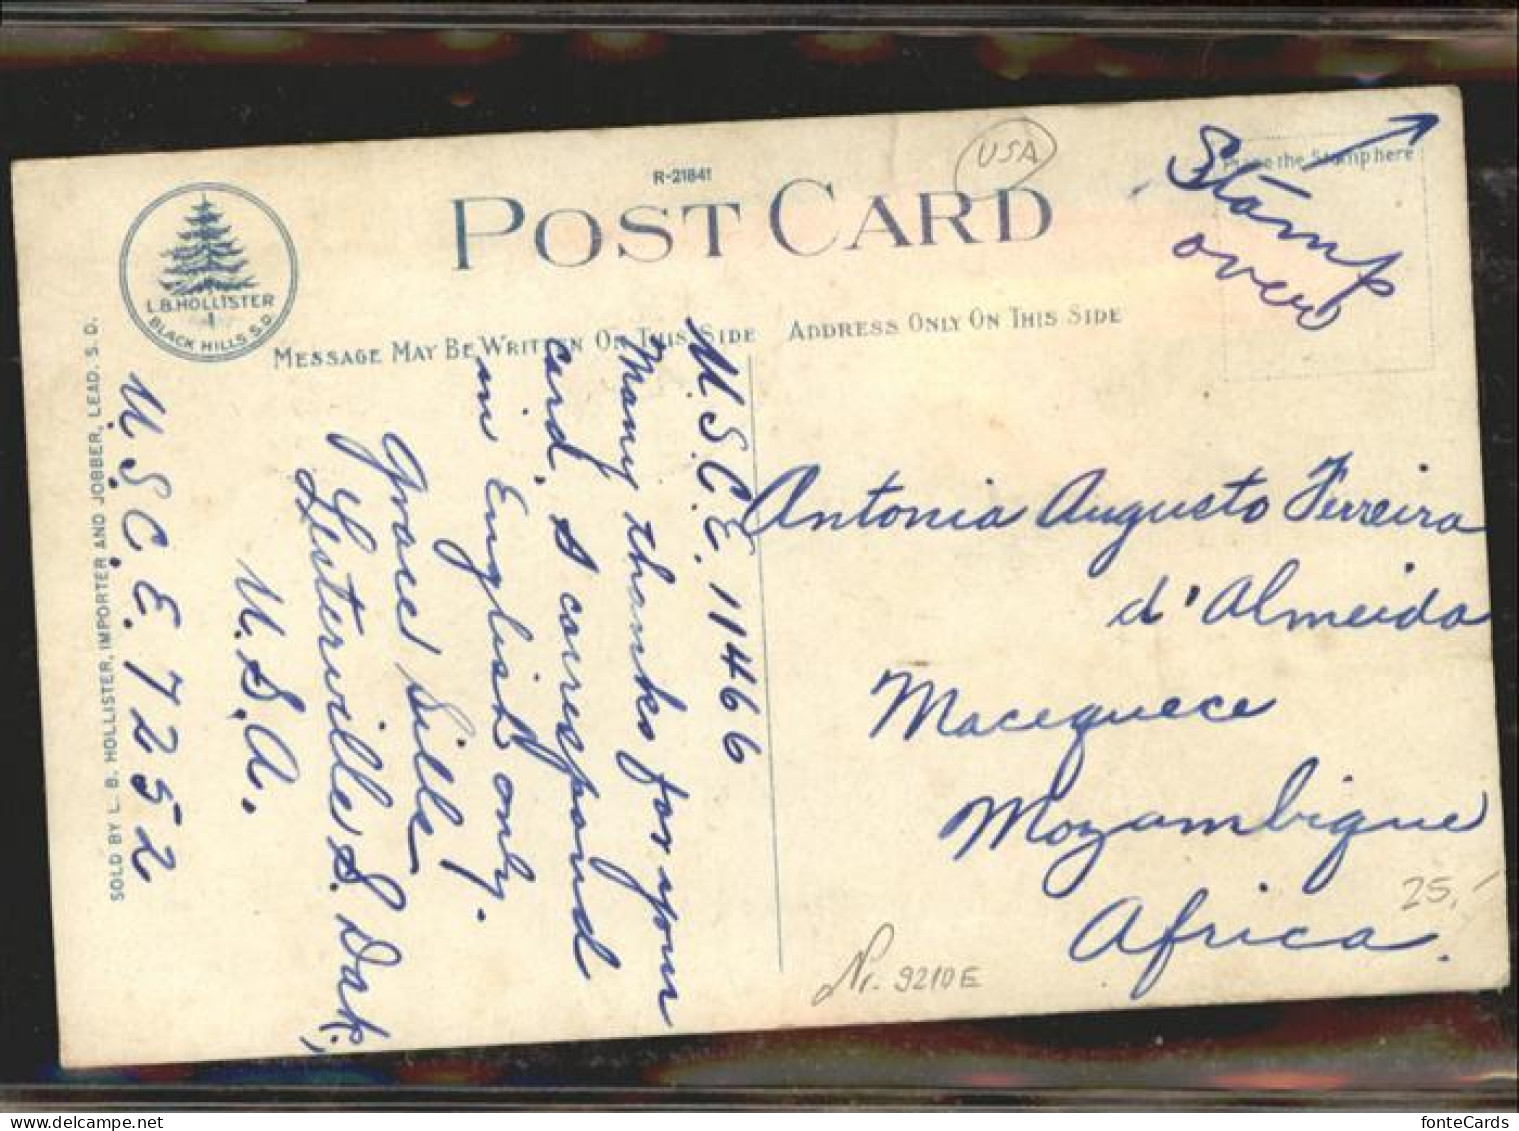 R-21841
POST CARD
USA
Place the Stamp here
Stamp
over
L.B. HOLLISTER
BLACK HILLS S.D.
MESSAGE MAY BE WRITTEN ON THIS SIDE
ADDRESS ONLY ON THIS SIDE
SOLD BY L. B. HOLLISTER, IMPORTER AND JOBBER, LEAD, S. D.
U.S.C.E. 11466
Many thanks for your
card, I correspond
in English only.
Grace Sille
Lesterville, S. Dak.,
U.S.A.
U.S.C.E. 7252
Antonia Augusto Ferreira
d'Almeida
Macequece
Mozambique
Africa.
25,-
Nr. 9210E
fonteCards